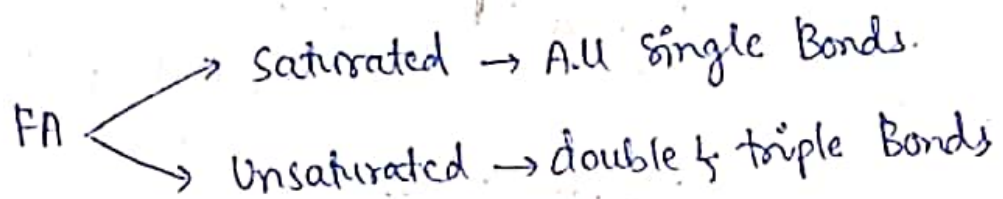 Saturated → All Single Bonds.
FA
Unsaturated → double & triple Bonds